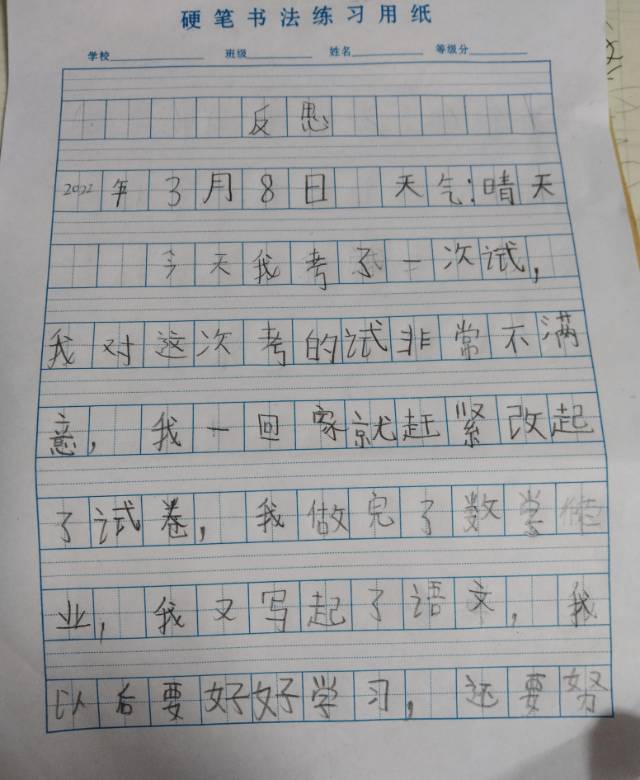 硬笔书法练习用纸
学校 班级 姓名 等级分
反思
2022年3月8日 天气:晴天
今天我考了一次试,
我对这次考的试非常不满
意,我一回家就赶紧改起
了试卷,我做完了数学作
业,我又写起了语文,我
以后要好好学习,还要努